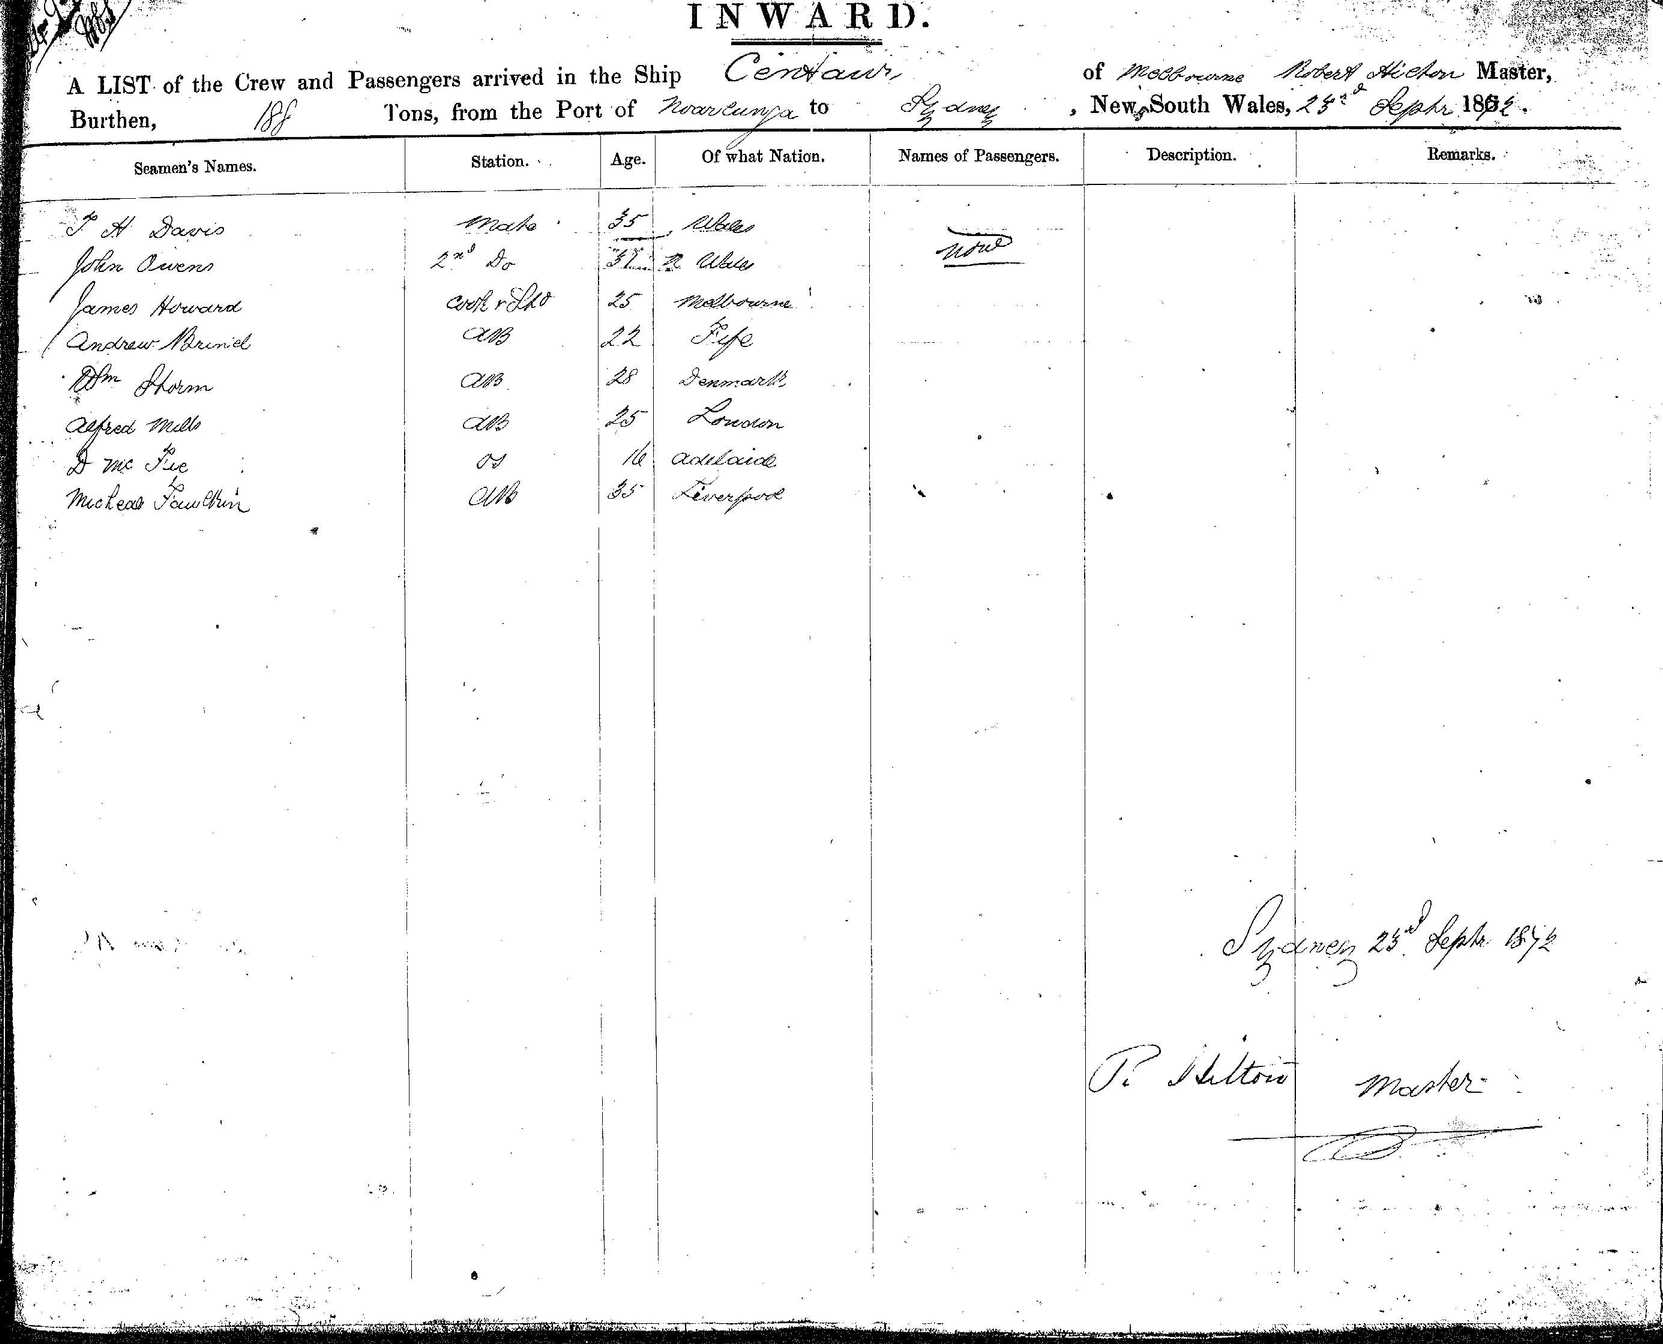 INWARD.
A LIST of the Crew and Passengers arrived in the Ship Centaur of Melbourne Robert Hilton Master,
Burthen, 188 Tons, from the Port of Noarlunga to Sydney, New South Wales, 23rd Septr 1872.
Seamen's Names. Station. Age. Of what Nation. Names of Passengers. Description. Remarks.
T H Davis Mate 35 Wales
None
John Owens 2nd Do 37 N Wales
James Howard Cook & Std 25 Melbourne
Andrew AB 22 Fife
Wm Storm AB 28 Denmark
Alfred Mills AB 25 London
D Mc Fie OS 16 Adelaide
Micheal AB 35 Liverpool
Sydney 23rd Septr 1872
R. Hilton Master